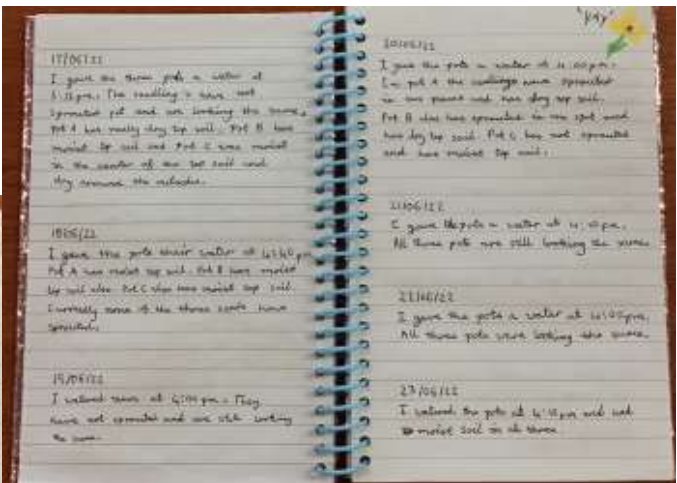 17/06/22
I gave the three pots a water at
pm. The seedlings have not
sprouted yet and are looking the same.
Pot A has really dry top soil. Pot B has
moist top soil and Pot C was moist
in the center of the top soil and
dry around the outside.
18/06/22
I gave the pots their water at 4:40 pm
Pot A has moist top soil. Pot B has moist
top soil also. Pot C also has moist top soil.
Currently none of the three seeds have
sprouted.
19/06/22
I watered them at 4:00 pm. They
have not sprouted and are still looking
the same.
"yay"
20/06/22
I gave the pots a water at 4:00 pm.
In pot A the seedlings have sprouted
in one and has dry top soil.
Pot B also has sprouted in one spot and
has dry top soil. Pot C has not sprouted
and has moist top soil.
21/06/22
I gave the pots a water at pm.
All three pots are still looking the same
22/06/22
I gave the pots a water at pm.
All three pots were looking the same.
23/06/22
I watered the pots at pm and had
moist soil in all three